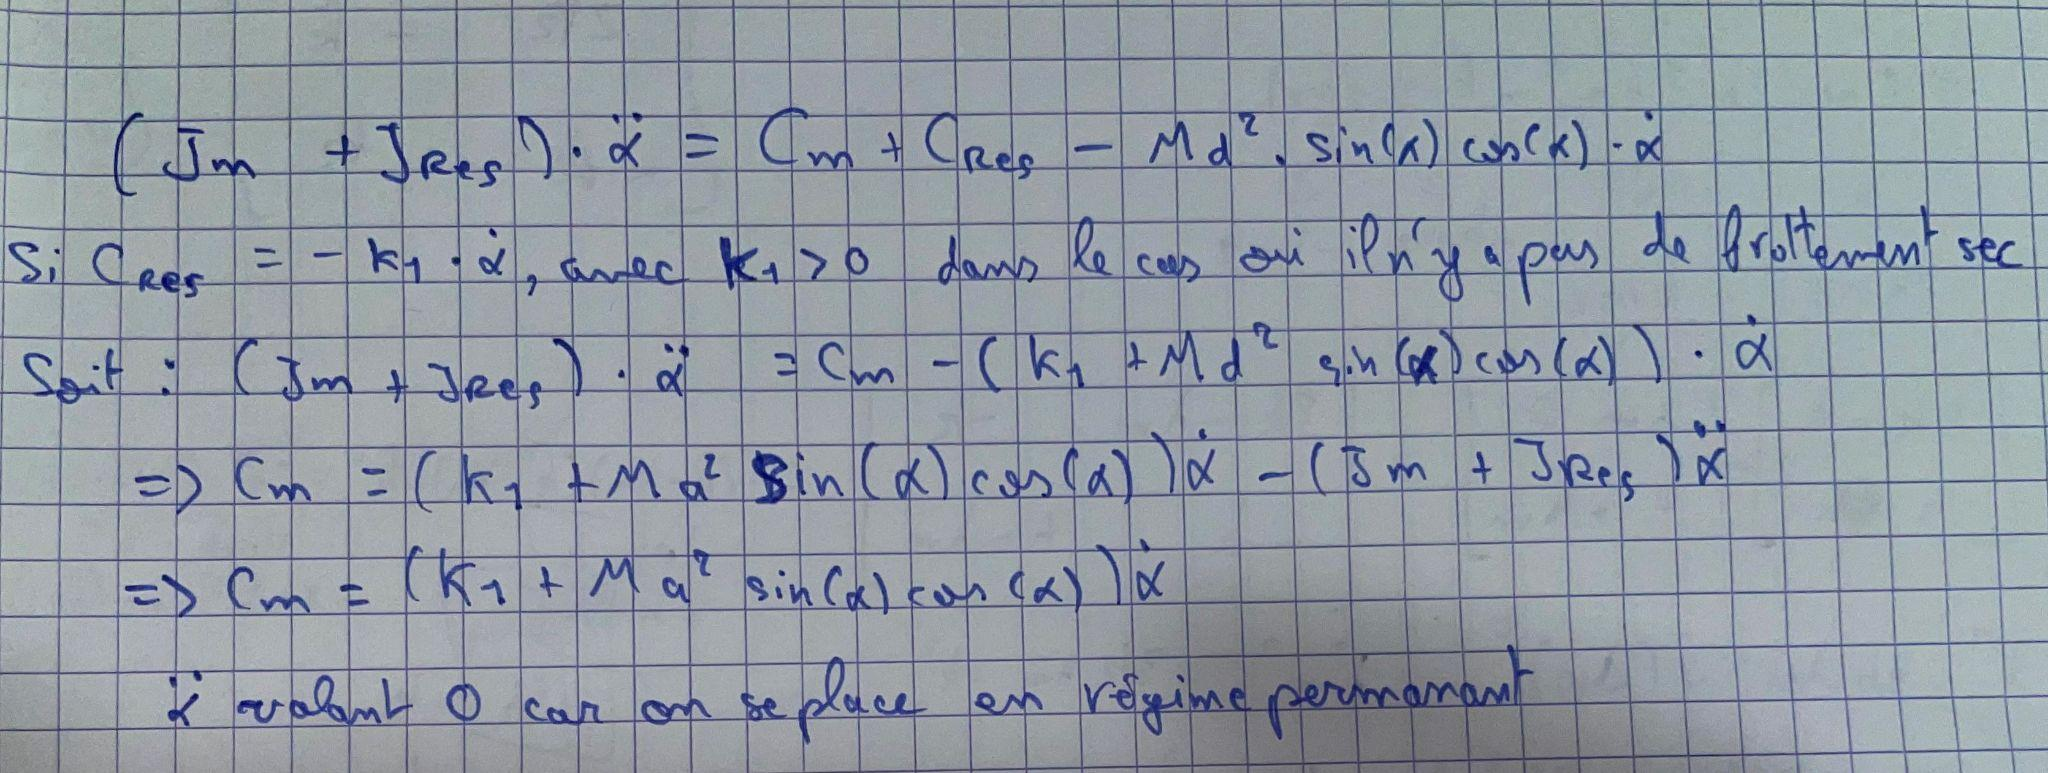 (Jm + JRes) · α̈ = Cm + CRes − Md². sin(α) cos(α) · α̇
Si CRes = − k1 · α̇, avec k1 > 0 dans le cas où il n'y a pas de frottement sec
Soit : (Jm + JRes) · α̈ = Cm − (k1 + Md² sin(α) cos(α)) · α̇
=> Cm = (k1 + Md² Sin(α) cos(α)) α̇ − (Jm + JRes) α̈
=> Cm = (K1 + Md² sin(α) cos(α)) α̇
α̈ valant 0 car on se place en régime permanant